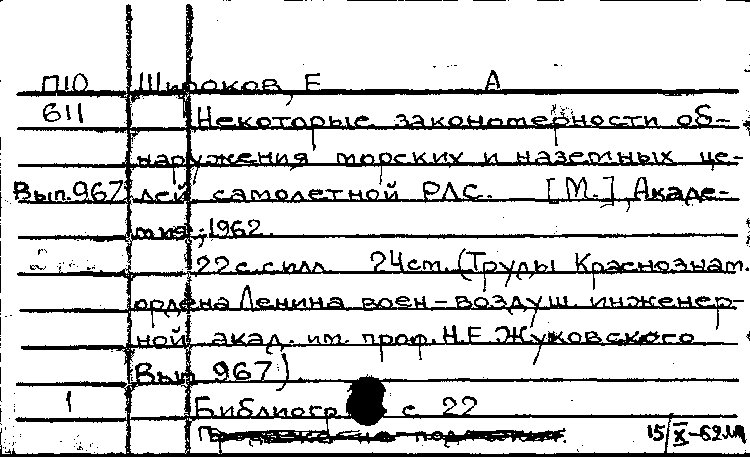 П10 Широков, Е А
611 Некоторые закономерности об-
наружения морских и наземных це-
Вып.967 лей самолетной РЛС. [М.], Акаде-
мия, 1962.
22 с. с илл. 24 см. (Труды Краснознам.
ордена Ленина воен-воздуш. инженер-
ной акад. им. проф. Н.Е Жуковского
Вып 967)
1 Библиогр с 22
Продаже не подлежит.
15/X-62